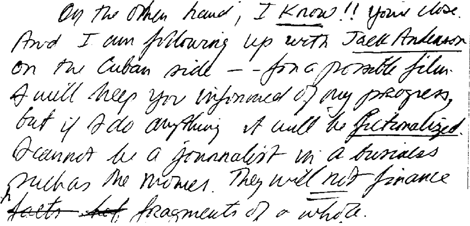 On the other hand, I Know!! Your close.
And I am following up with Jack Anderson
on the Cuban side -- for a possible film.
I will keep you informed of my progress,
but if I do anything it will be fictionalized.
I cannot be a journalist in a business
such as the movies. They will not finance
facts but fragments of a whole.